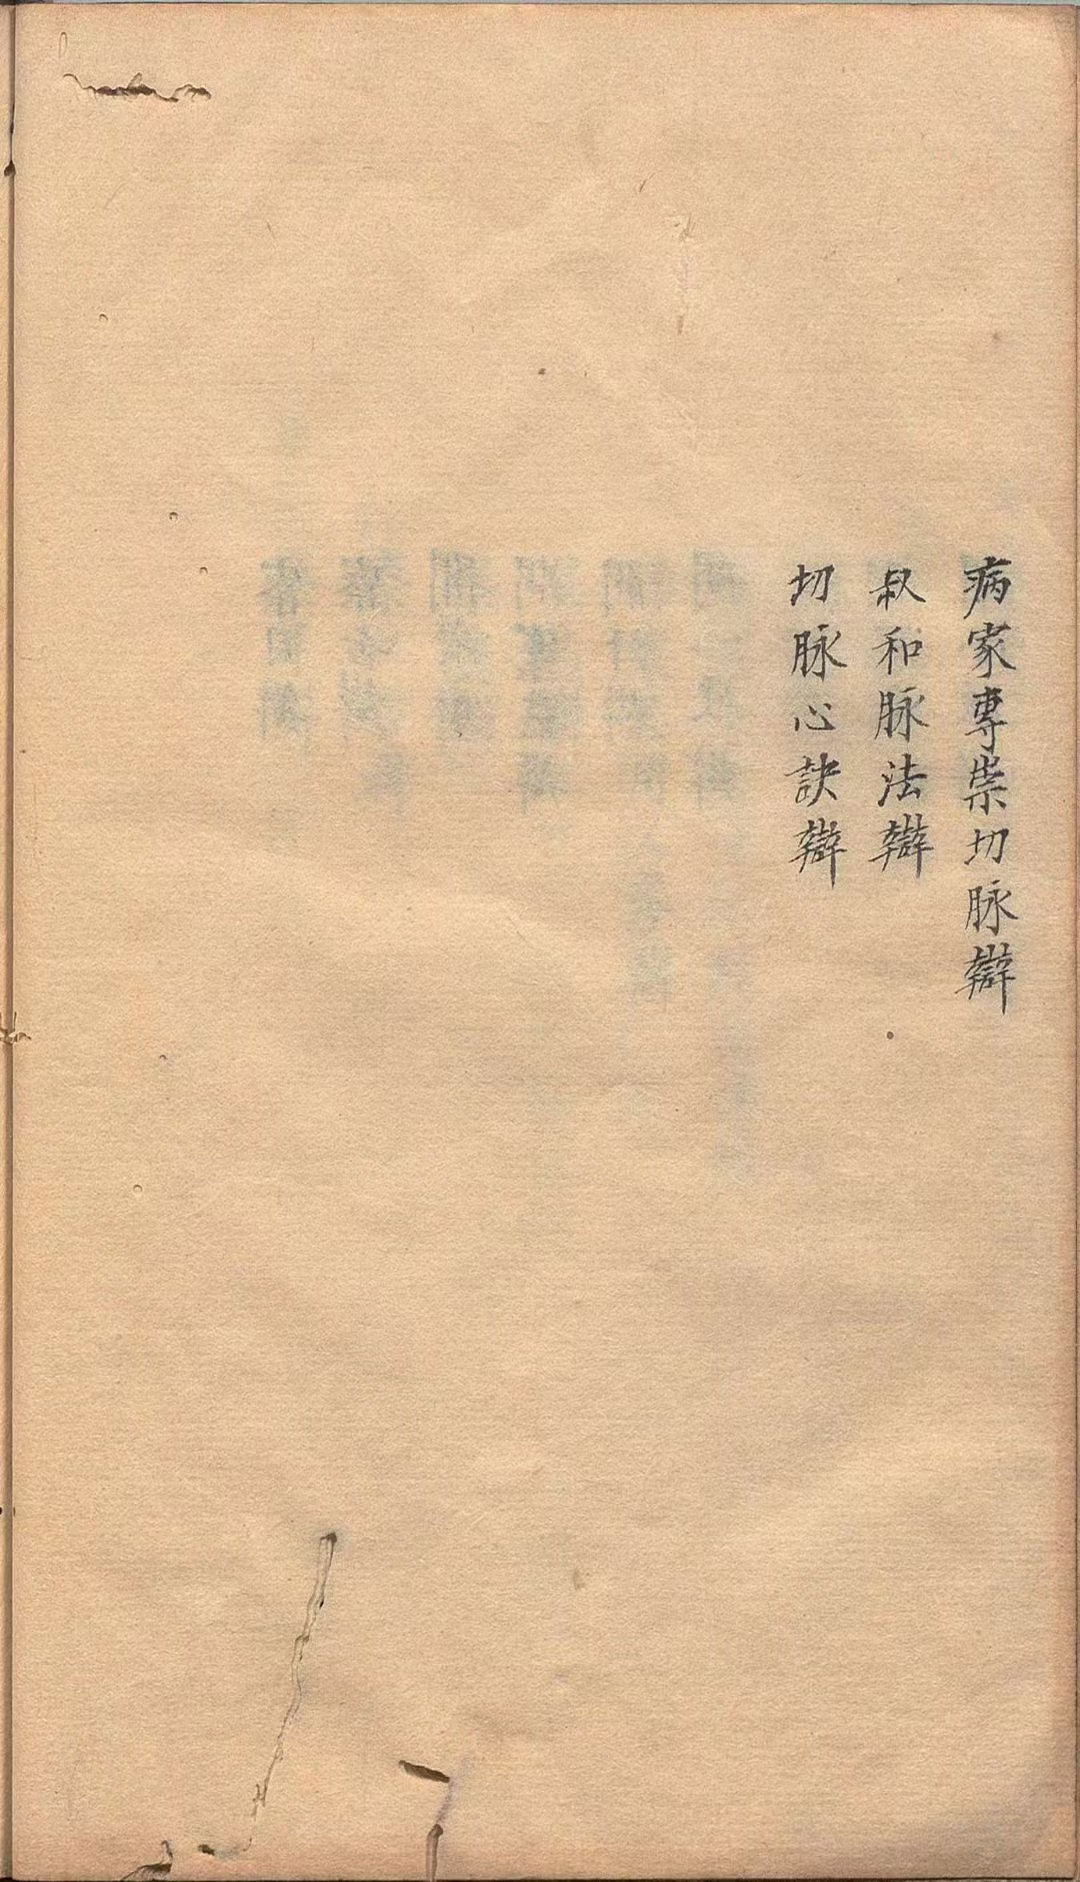 病家專崇切脉辯
叔和脉法辯
切脉心訣辯